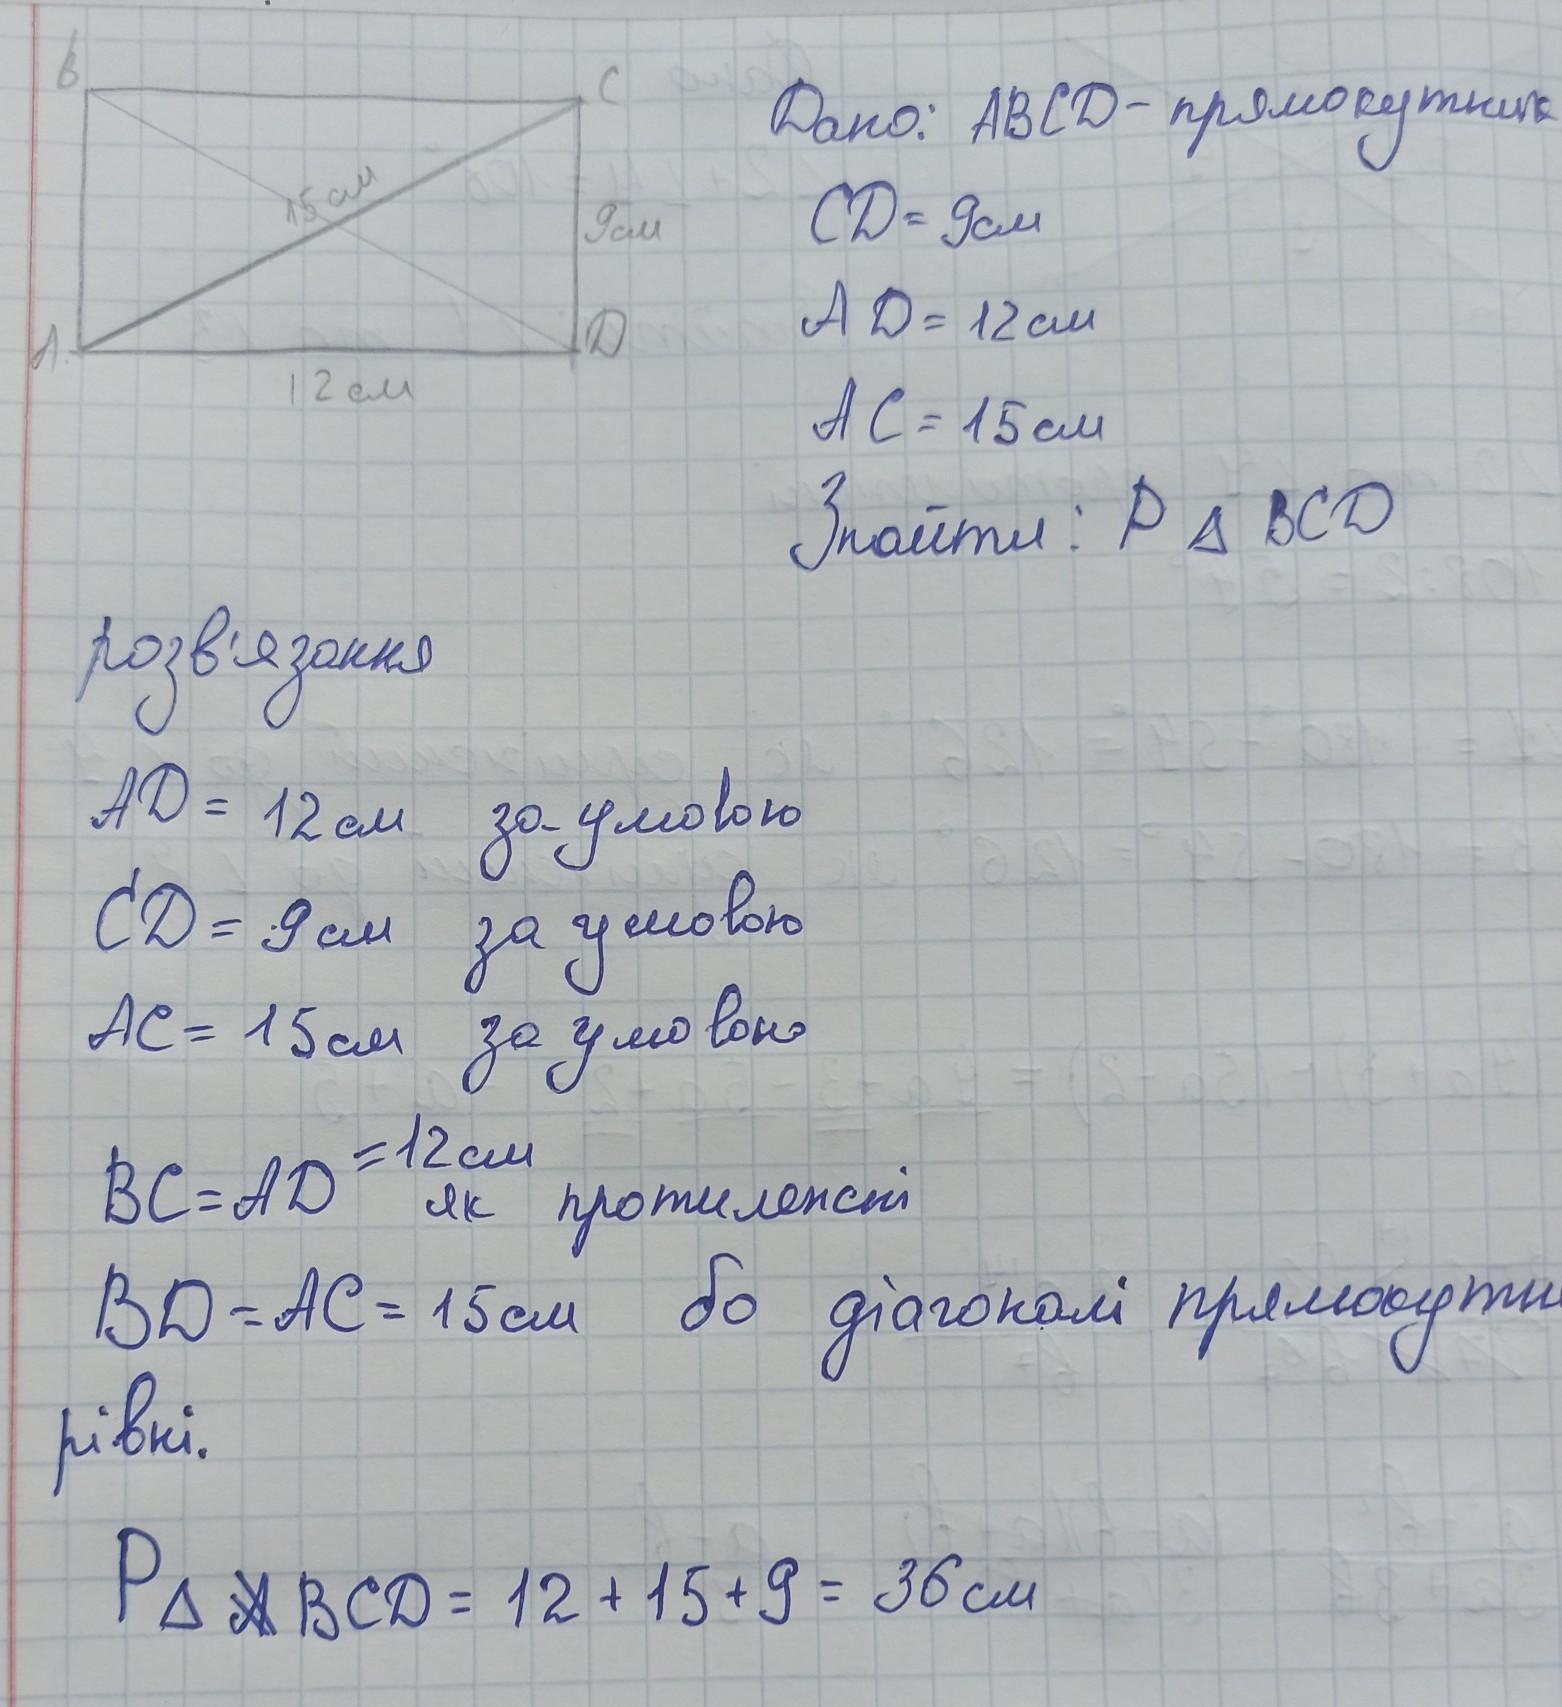 B
C
Дано: ABCD - прямокутник
15 см
9см
CD = 9см
A
D
AD = 12см
12 см
AC = 15см
Знайти: P △ BCD
розв'язання
AD = 12см за умовою
CD = 9см за умовою
AC = 15см за умовою
BC = AD = 12см
як протилежні
BD = AC = 15см бо діагоналі прямокутни
рівні.
P△ BCD = 12 + 15 + 9 = 36см